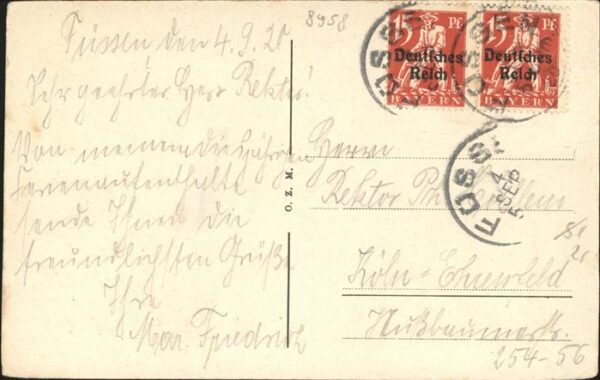 8958
Füssen den 4.9.20
Sehr geehrter Herr Rektor!
Von meinem diesjährigen
Ferienaufenthalte
sende Ihnen die
freundlichsten Grüße
Ihre
Mar. Friedrich
O. Z. M.
15 Pf.
Deutsches
Reich
BAYERN
15 Pf.
Deutsches
Reich
BAYERN
FÜSSEN
4 SEP
Herrn
Rektor Ph.
Köln-Ehrenfeld
Nußbaumerstr.
254-56